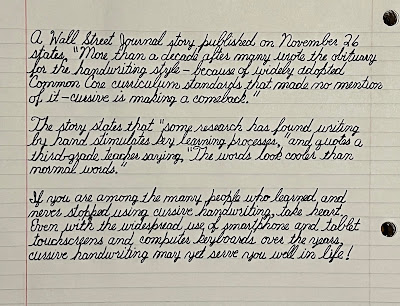 A Wall Street Journal story published on November 26
states, "More than a decade after many wrote the obituary
for the handwriting style—because of widely adopted
Common Core curriculum standards that made no mention
of it—cursive is making a comeback."
The story states that "some research has found writing
by hand stimulates key learning processes," and quotes a
third-grade teacher saying, "The words look cooler than
normal words."
If you are among the many people who learned and
never stopped using cursive handwriting, take heart.
Even with the widespread use of smartphone and tablet
touchscreens and computer keyboards over the years,
cursive handwriting may yet serve you well in life!